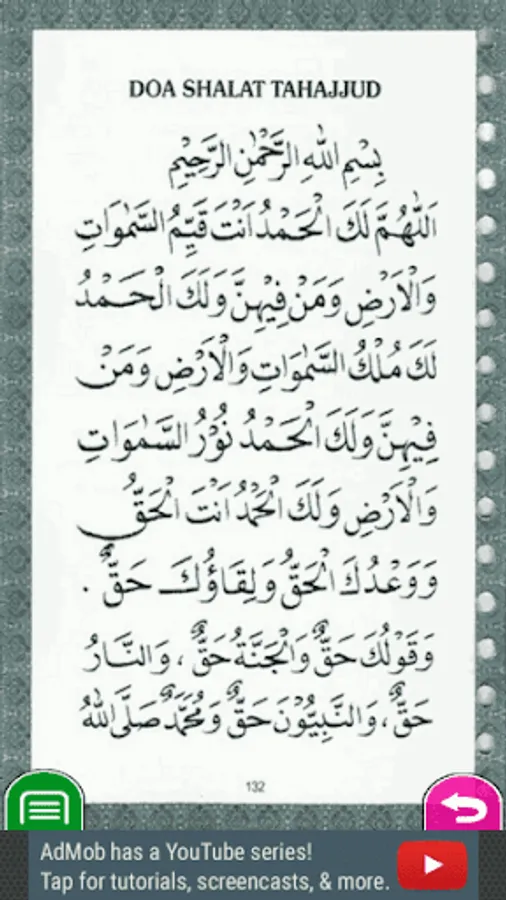 DOA SHALAT TAHAJJUD
بِسْمِ اللهِ الرَّحْمٰنِ الرَّحِيْمِ
اَللّٰهُمَّ لَكَ الْحَمْدُ اَنْتَ قَيِّمُ السَّمٰوَاتِ
وَالْاَرْضِ وَمَنْ فِيْهِنَّ وَلَكَ الْحَمْدُ
لَكَ مُلْكُ السَّمٰوَاتِ وَالْاَرْضِ وَمَنْ
فِيْهِنَّ وَلَكَ الْحَمْدُ نُوْرُ السَّمٰوَاتِ
وَالْاَرْضِ وَلَكَ الْحَمْدُ اَنْتَ الْحَقُّ
وَوَعْدُكَ الْحَقُّ وَلِقَاؤُكَ حَقٌّ .
وَقَوْلُكَ حَقٌّ وَالْجَنَّةُ حَقٌّ ، وَالنَّارُ
حَقٌّ ، وَالنَّبِيُّوْنَ حَقٌّ وَمُحَمَّدٌ صَلَّى اللهُ
132
AdMob has a YouTube series!
Tap for tutorials, screencasts, & more.